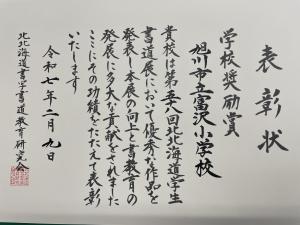 表彰状
学校奨励賞
旭川市立富沢小学校
貴校は第五十八回北北海道学生
書道展において優秀な作品を
発表し本展の向上と書教育の
発展に多大な貢献をされました
ここにその功績をたたえて表彰
いたします
令和七年二月九日
北北海道書学書道教育研究会